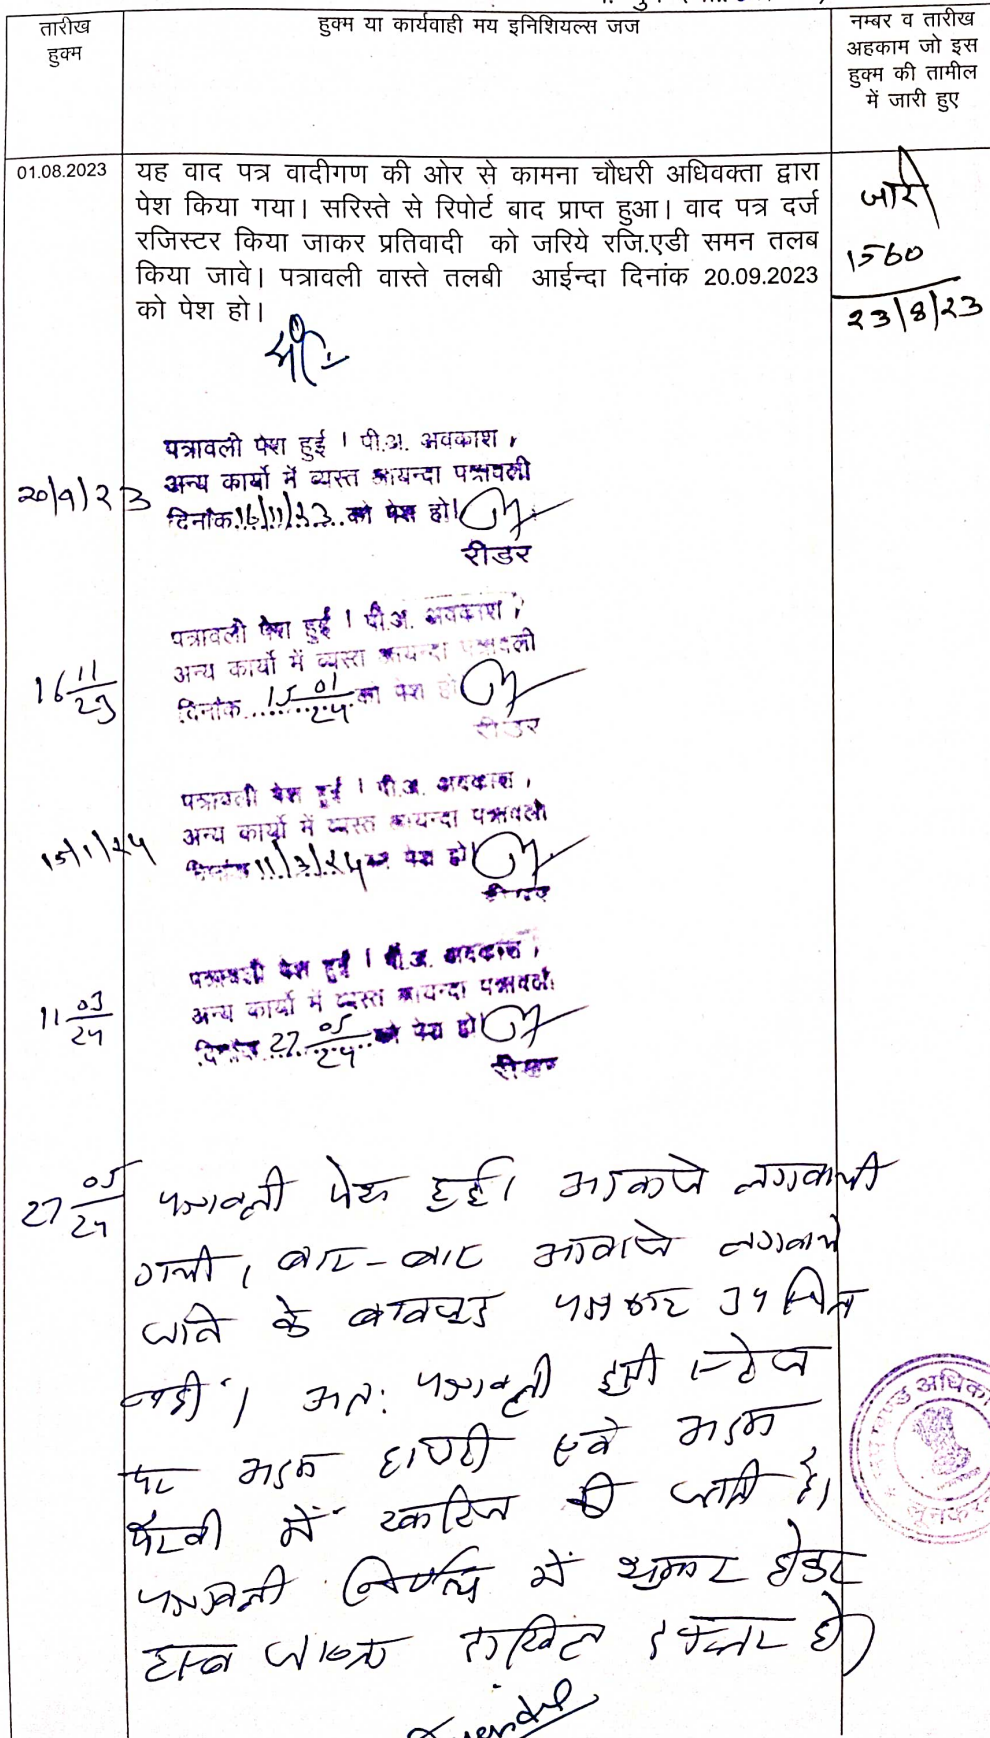 तारीख
हुक्म
हुक्म या कार्यवाही मय इनिशियल्स जज
नम्बर व तारीख
अहकाम जो इस
हुक्म की तामील
में जारी हुए
01.08.2023
यह वाद पत्र वादीगण की ओर से कामना चौधरी अधिवक्ता द्वारा
पेश किया गया। सरिस्ते से रिपोर्ट बाद प्राप्त हुआ। वाद पत्र दर्ज
रजिस्टर किया जाकर प्रतिवादी को जरिये रजि.एडी समन तलब
किया जावे। पत्रावली वास्ते तलबी आईन्दा दिनांक 20.09.2023
को पेश हो।
जारी
1560
23/8/23
20/9/23
पत्रावली पेश हुई । पी.अ. अवकाश,
अन्य कार्यो में व्यस्त आयन्दा पत्रावली
दिनांक 16/11/23 को पेश हो।
रीडर
16 11/23
पत्रावली पेश हुई । पी.अ. अवकाश,
अन्य कार्यो में व्यस्त आयन्दा पत्रावली
दिनांक 15 01/24 को पेश हो
रीडर
15/1/24
पत्रावली पेश हुई । पी.अ. अवकाश,
अन्य कार्यो में व्यस्त आयन्दा पत्रावली
दिनांक 11/3/24 को पेश हो
रीडर
11 03/24
पत्रावली पेश हुई । पी.अ. अवकाश,
अन्य कार्यो में व्यस्त आयन्दा पत्रावली
दिनांक 27 05/24 को पेश हो
रीडर
27 05/24
पत्रावली पेश हुई। आवाजे लगवायी
गयी, बार-बार आवाजे लगवाये
जाने के बावजूद पक्षकार उपस्थित
नहीं। अतः पत्रावली इसी स्टेज
पर अदम हाजरी एवं अदम
पैरवी में खारिज की जाती है।
पत्रावली निर्णित में शुमार होकर
बाद जाब्ता दाखिल दफ्तर हो
अधिका
लूनकर